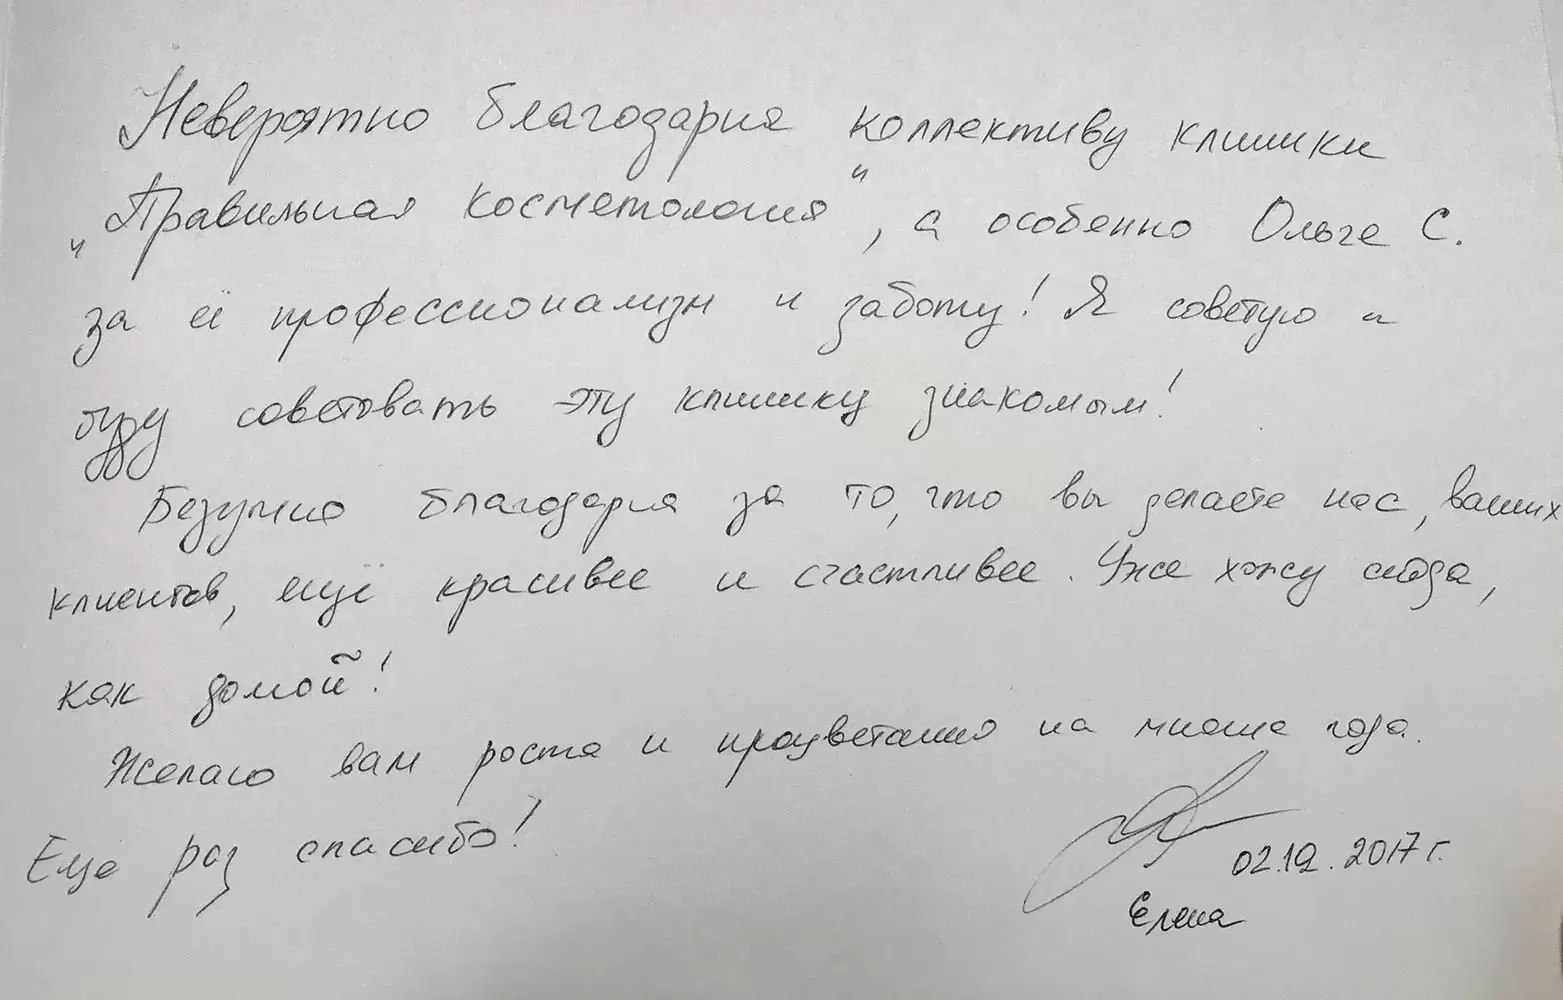 Невероятно благодарна коллективу клиники
"Правильная косметология", а особенно Ольге С.
за её профессионализм и заботу! Я советую и
буду советовать эту клинику знакомым!
Безумно благодарна за то, что вы делаете нас, ваших
клиентов, ещё красивее и счастливее. Уже хожу сюда,
как домой!
Желаю вам роста и процветания на многие года.
Ещё раз спасибо!
02.12.2017 г.
Елена